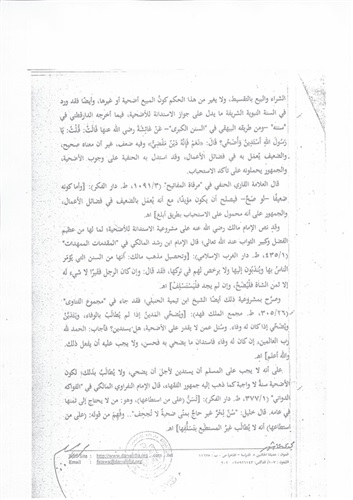 الشراء والبيع بالتقسيط، ولا يغير من هذا الحكم كون المبيع أضحية أو غيرها، وأيضًا فقد ورد
في السنة النبوية الشريفة ما يدل على جواز الاستدانة للأضحية، فيما أخرجه الدارقطني في
"سننه" -ومن طريقه البيهقي في "السنن الكبرى"- عَنْ عَائِشَةَ رضي الله عنها قَالَتْ: قُلْتُ: يَا
رَسُولَ اللهِ أَسْتَدِينُ وَأُضَحِّي؟ قَالَ: «نَعَمْ فَإِنَّهُ دَيْنٌ مَقْضِيٌّ» وفيه ضعف، غير أن معناه صحيح،
والضعيف يُعمَل به في فضائل الأعمال، وقد استدل به الحنفية على وجوب الأضحية،
والجمهور يحملونه على تأكد الاستحباب.
قال العلامة القاري الحنفي في "مرقاة المفاتيح" (٣/ ١٠٩١، ط. دار الفكر): [وأما كونه
ضعيفًا -لو صحَّ- فيصلح أن يكون مؤيدًا، مع أنه يعمل بالضعيف في فضائل الأعمال،
والجمهور على أنه محمول على الاستحباب بطريق أبلغ] اهـ.
وقد نص الإمام مالك رضي الله عنه على مشروعية الاستدانة للأضحية؛ لما لها من عظيم
الفضل وكبير الثواب عند الله تعالى؛ قال الإمام ابن رشد المالكي في "المقدمات الممهدات"
(١/ ٤٣٥، ط. دار الغرب الإسلامي): [وتحصيل مذهب مالك: أنها من السنن التي يُؤمَر
الناسُ بها ويُندَبُون إليها ولا يرخص لهم في تركها، فقد قال: وإن كان الرجل فقيرًا لا شيء له
إلا ثمن الشاة فليُضَحِّ، وإن لم يجد فليستسلف] اهـ.
وصرَّح بمشروعية ذلك أيضًا الشيخ ابن تيمية الحنبلي؛ فقد جاء في "مجموع الفتاوى"
(٢٦/ ٣٠٥، ط. مجمع الملك فهد): [ويُضحِّي المدين إذا لم يُطالَب بالوفاء، ويتديَّن
ويُضحِّي إذا كان له وفاء. وسُئل عمن لا يقدر على الأضحية، هل يستدين؟ فأجاب: الحمد لله
رب العالمين، إن كان له وفاء فاستدان ما يضحي به فحسن، ولا يجب عليه أن يفعل ذلك.
والله أعلم] اهـ.
على أنه لا يجب على المسلم أن يستدين لأجل أن يضحي، ولا يُطالَب بذلك؛ لكون
الأضحية سنةً لا واجبة كما ذهب إليه جمهور الفقهاء، قال الإمام النفراوي المالكي في "الفواكه
الدواني" (١/ ٣٧٧، ط. دار الفكر): [(سُنَّ) (على من استطاعها)، وهو من لا يحتاج إلى ثمنها
في عامه. قال خليل: "سُنَّ لِحُرٍّ غير حاجٍّ بمنى ضحيةٌ لا تُجحِف".. وفُهِم من قوله: (على من
استطاعها) أنه لا يُطالَب غيرُ المستطيع بتَسَلُّفِها] اهـ.
Web Site :
Email :